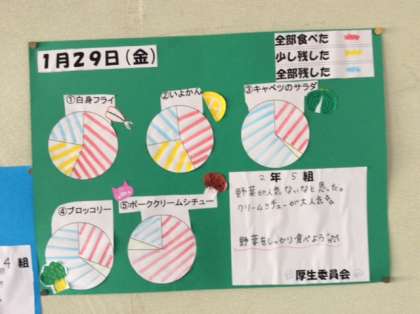 1月29日(金)
全部食べた
少し残した
全部残した
①白身フライ
②いよかん
③キャベツのサラダ
④ブロッコリー
⑤ポークククリームシチュー
2年5組
野菜が人気ないなと思った。
クリームシチューが大人気
野菜をしっかり食べよう
厚生委員会
4組